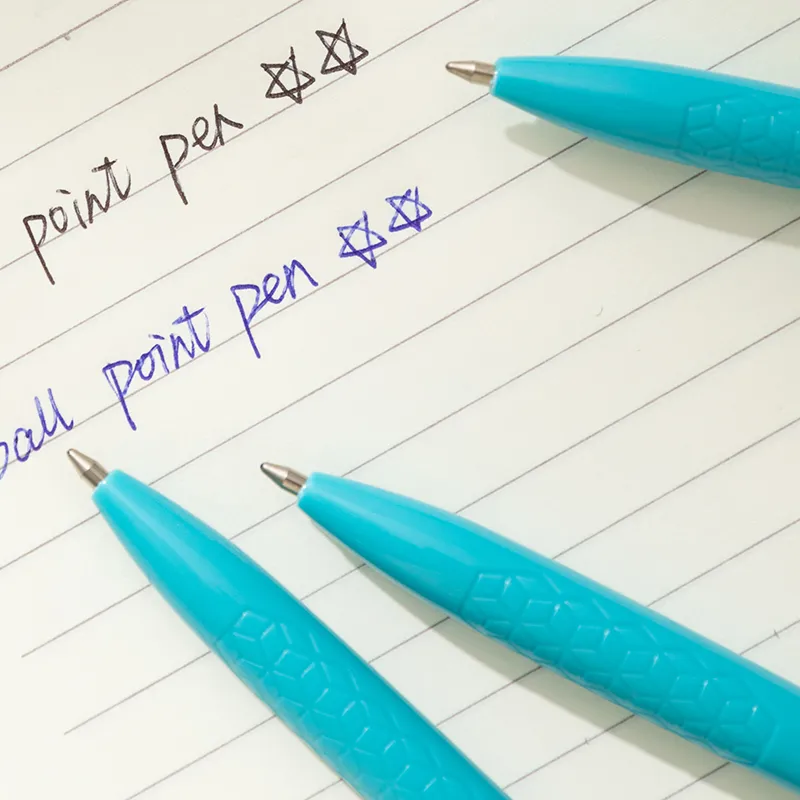 point pen ☆☆
ball point pen ☆☆